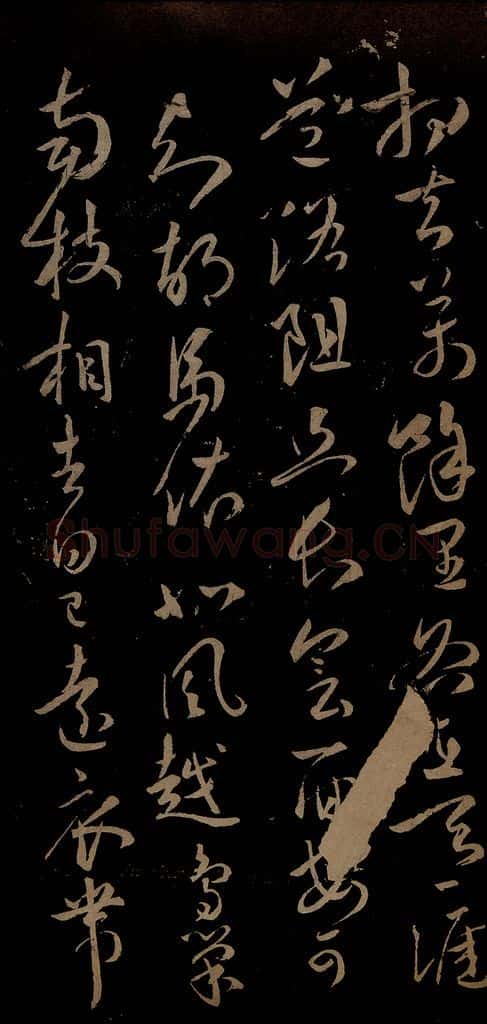 相去萬餘里各在天一涯
道路阻且長會面安可
知胡馬依北風越鳥巢
南枝相去日已遠衣帶
Shufawang.CN